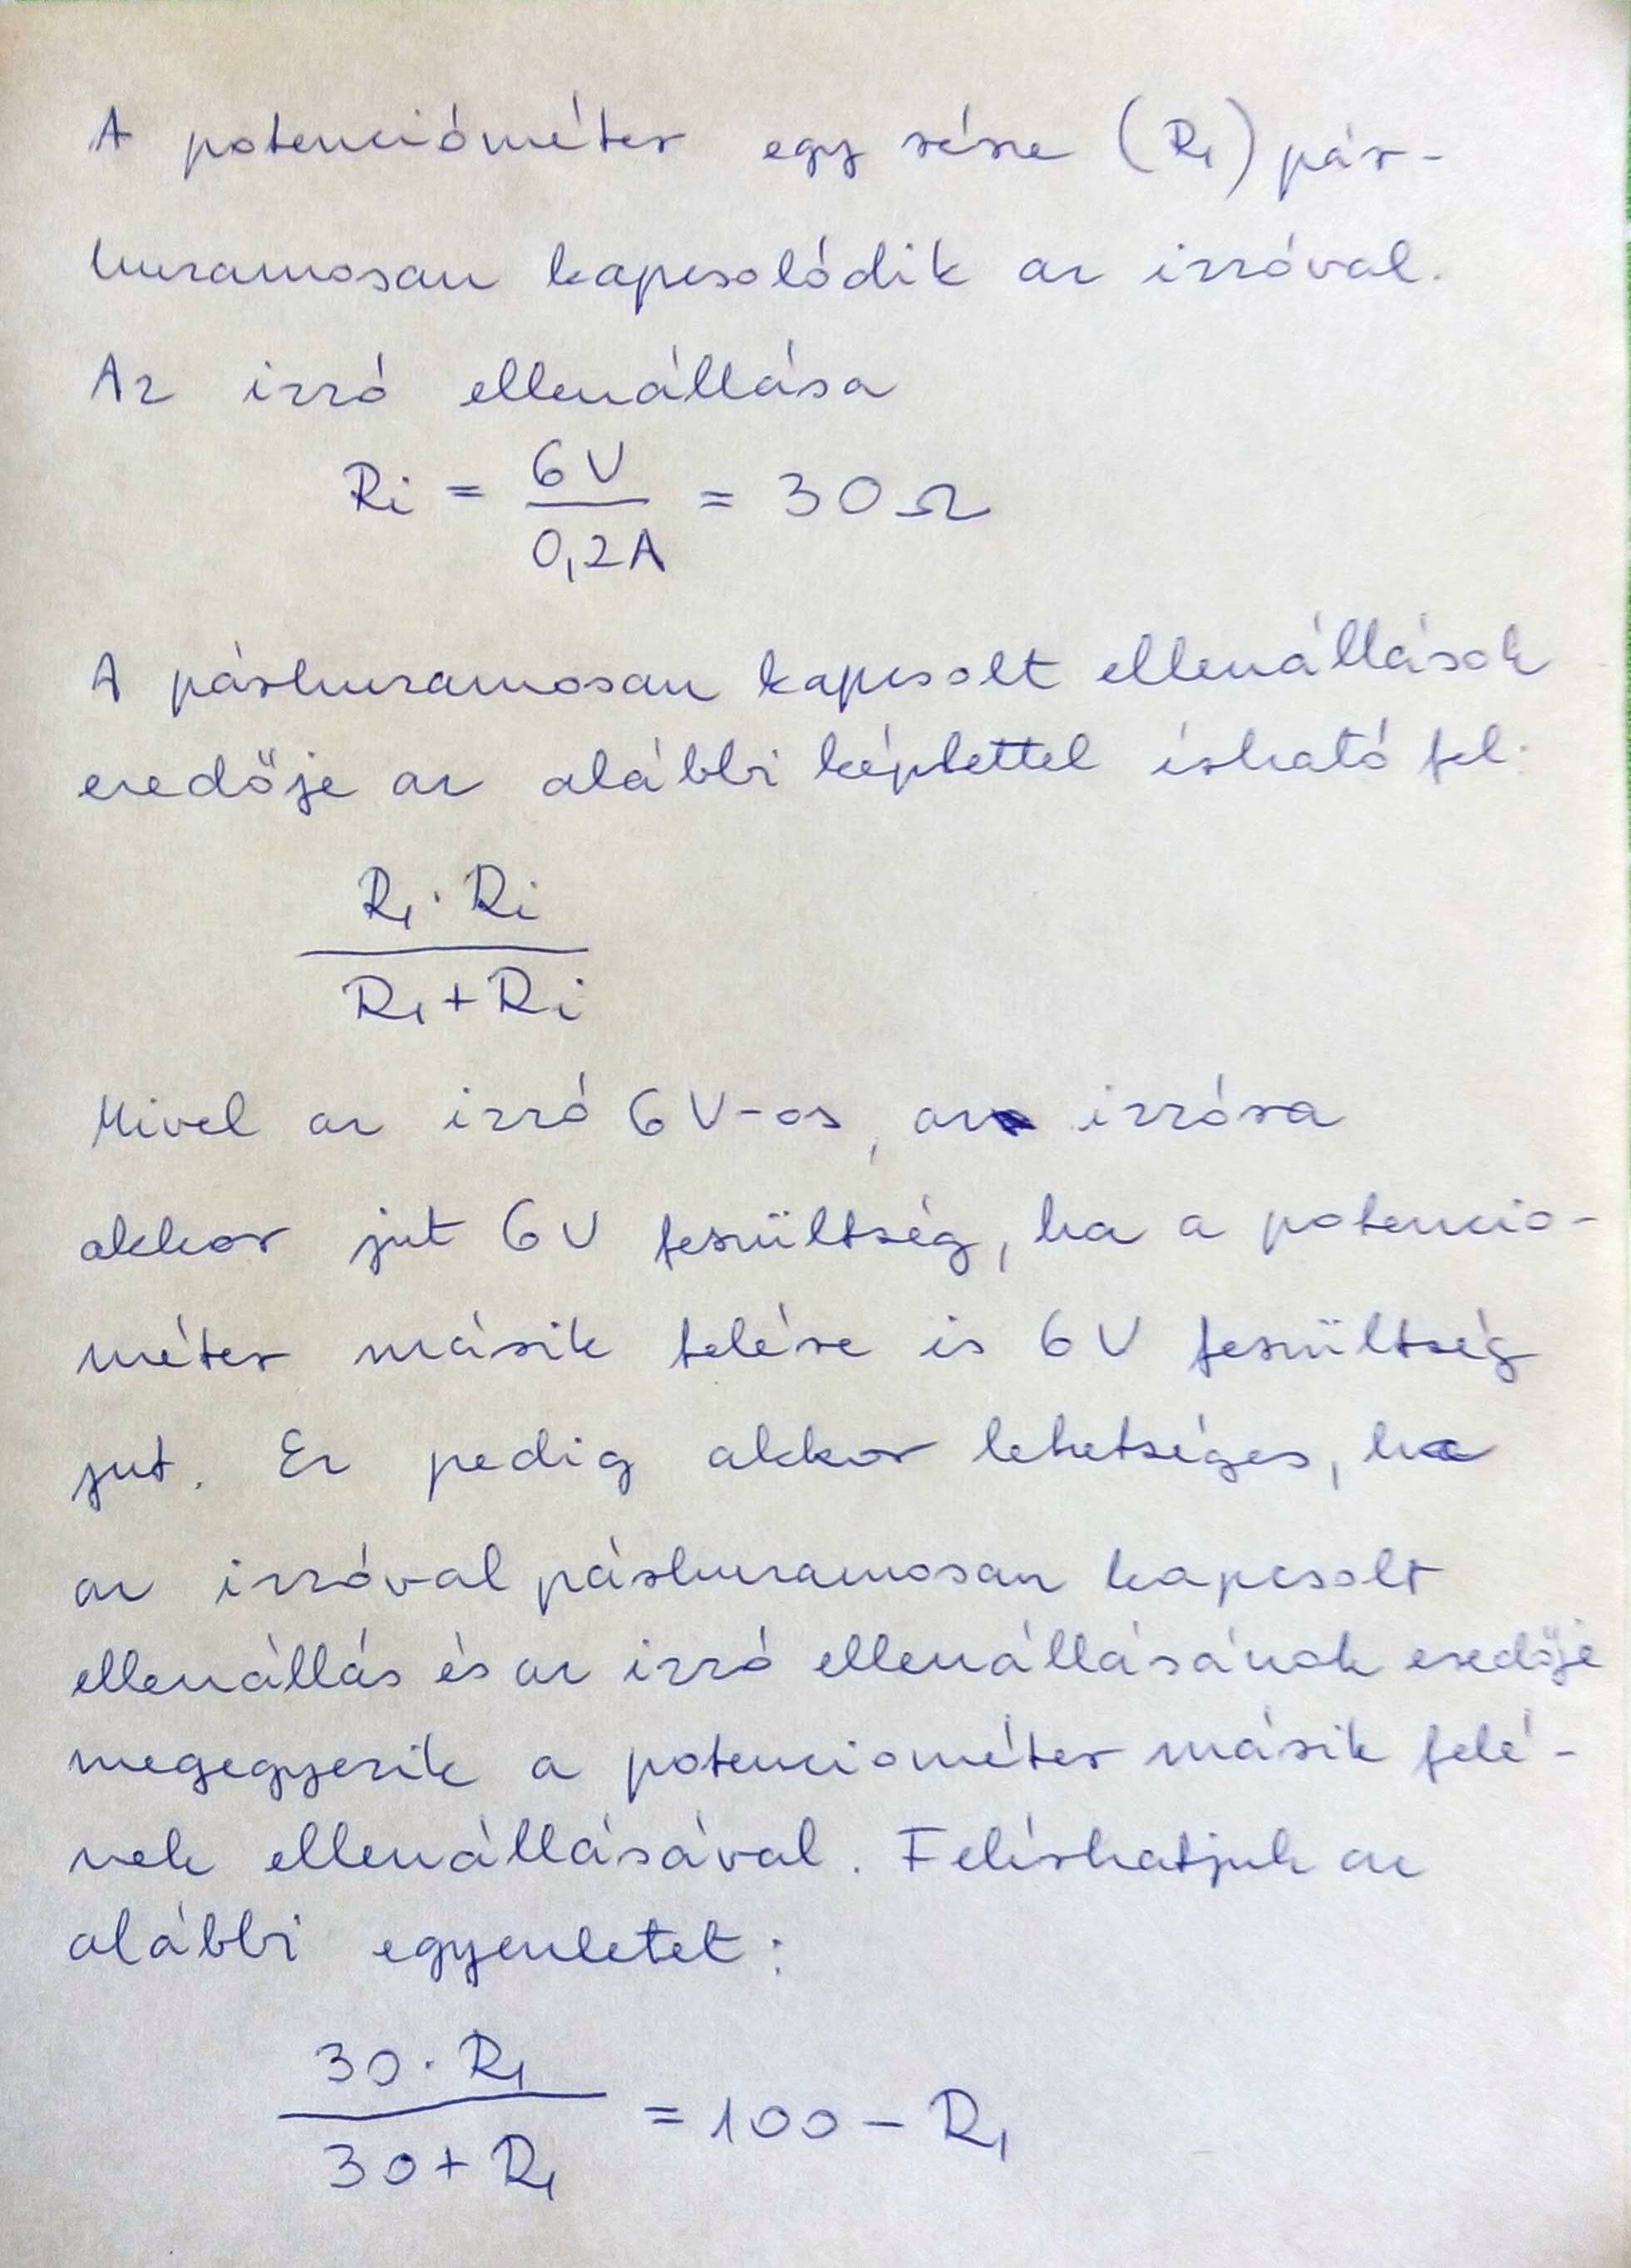 A potenciométer egy része (R₁) pár-
huzamosan kapcsolódik az izzóval.
Az izzó ellenállása
Ri = 6V / 0,2A = 30 Ω
A párhuzamosan kapcsolt ellenállások
eredője az alábbi képlettel írható fel:
R₁ · Ri
R₁ + Ri
Mivel az izzó 6 V-os, az izzóra
akkor jut 6V feszültség, ha a potencio-
méter másik felére is 6V feszültség
jut. Ez pedig akkor lehetséges, ha
az izzóval párhuzamosan kapcsolt
ellenállás és az izzó ellenállásának eredője
megegyezik a potenciométer másik felé-
nek ellenállásával. Felírhatjuk az
alábbi egyenletet:
30 · R₁ / 30 + R₁ = 100 - R₁